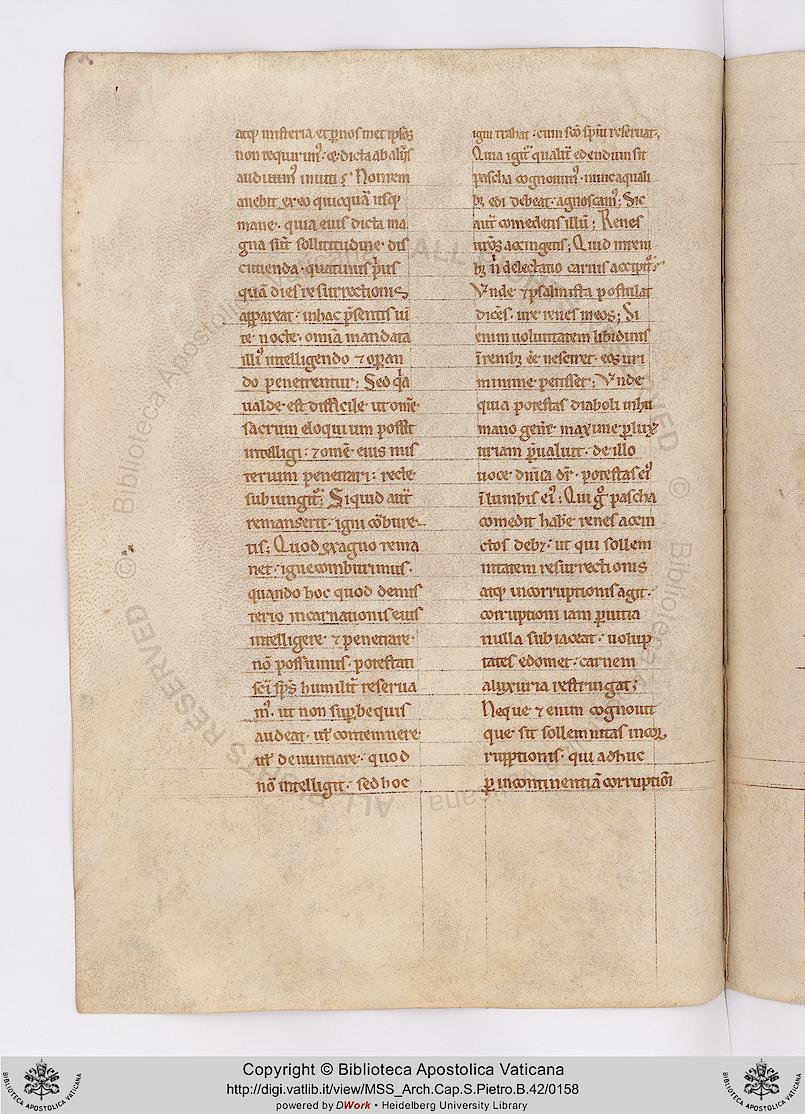 atq; misteria. et p nos met ipsos
non requirim᷒. & dicta ab aliis
auditum᷒ inuti s᷒ Non rem
anebit ex eo quicquā usq;
mane. quia eius dicta ma
gna sūt sollititudine. dis
cutienda. quatinus p̄us
quā dies resurrectionis
appareat. in hac p̄sentis ui
te nocte. om̄ia mandata
illi᷒ intelligendo ⁊ opan
do penetrentur; Sed q̄a
ualde est difficile ut om̄e
sacrum eloquium possit
intelligi: ⁊ om̄e eius mis
terium penetrari: recte
subiungit᷒; Siquid aūt
remanserit. igni cōbure
tis; Quod ex agno rema
net. igne comburimus.
quando hoc quod de mis
terio incarnationis eius
intelligere. ⁊ penetrare.
nō possumus. potestati
sc̄i sp̄s humilit̄ reserua
m᷒. ut non supbe quis
audeat. ut̄ contemnere
ut̄ denuntiare. quod
nō intelligit. sed hoc
igni trahat. cum sc̄o sp̄iu reseruat.
Quia igit᷒ qualit̄ edendum sit
pascha cognouim᷒. nunc a quali
b; edi debeat. agnoscam᷒; Sic
aūt comedetis illū; Renes
uros accingetis; Quid in reni
b; n̄ delectatio carnis accipit᷒?
Vnde ⁊ psalmista postulat
dicēs. ure renes meos; Si
enim uoluntatem libidinis
ī renib; ēē nesciret. eos uri
minime petisset; Vnde
quia potestas diaboli in hu
mano gen̄e. maxime p lux
uriam p̄ualuit. de illo
uoce dn̄ica dr̄. potestas ei᷒
ī lumbis ei᷒; Qui g° pascha
comedit hab̄e renes accin
ctos deb;. ut qui sollem
nitatem resurrectionis
atq; incorruptionis agit.
corruptioni iam p uitia
nulla subiaceat. uolup
tates edomet. carnem
a luxuria restringat;
Neque ⁊ enim cognouit
que sit sollemnitas incor
ruptionis. qui adhuc
p incontinentiā corruptiōi
Copyright © Biblioteca Apostolica Vaticana
http://digi.vatlib.it/view/MSS_Arch.Cap.S.Pietro.B.42/0158
powered by DWork • Heidelberg University Library